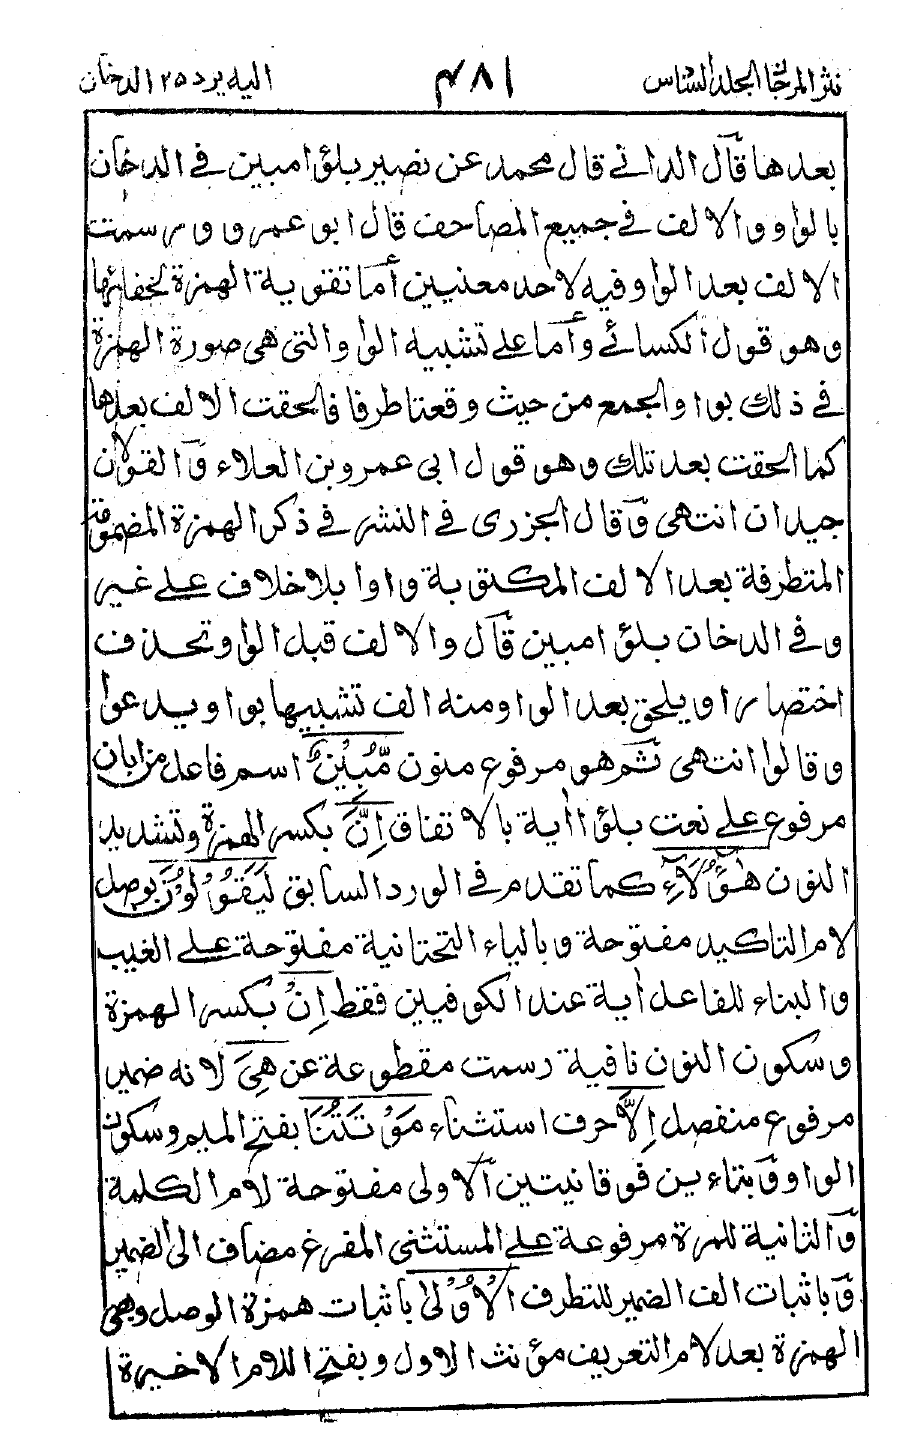 نثر المرجان الجلد السادس ٤٨١ اليه يرد ٢٥ الدخان
بعدها قال الدانے قال محمد عن نصير بلؤا مبين فے الدخان
بالواو والالف فے جميع المصاحف قال ابو عمرو ورسمت
الالف بعد الواو فيه لاحد معنيين أما تقوية الهمزة لخفائها
وهو قول الكسائے وأما علے تشبيه الواو التى هى صورة الهمزة
فے ذلك بواو الجمع من حيث وقعتا طرفا فالحقت الالف بعدها
كما الحقت بعد تلك وهو قول ابى عمرو بن العلاء والقولان
جيدان انتهى وقال الجزرى فے النشر فے ذكر الهمزة المضمومة
المتطرفة بعد الالف المكتوبة واوا بلا خلاف علے غير
وفے الدخان بلؤا مبين قال والالف قبل الواو تحذف
اختصارا ويلحق بعد الواو منه الف تشبيها بواو يدعوا
وقالوا انتهى ثم هو مرفوع منون مُّبِيْنٌ اسم فاعل من ابان
مرفوع علے نعت بلؤا اٰية بالاتفاق اِنَّ بكسر الهمزة وتشديد
النون هٰٓؤُلَآءِ كما تقدم فے الورد السابق لَيَقُوْلُوْنَ بوصل
لام التاكيد مفتوحة وبالياء التحتانية مفتوحة علے الغيب
والبناء للفاعل اٰية عند الكوفيين فقط اِنْ بكسر الهمزة
وسكون النون نافية رسمت مقطوعة عن هِىَ لانه ضمير
مرفوع منفصل اِلَّا حرف استثناء مَوْتَتُنَا بفتح الميم وسكون
الواو وبتاءين فوقانيتين الاولى مفتوحة لام الكلمة
والثانية للمرة مرفوعة علے المستثنى المفرغ مضاف الى الضمير
وباثبات الف الضمير للتطرف الْاُوْلٰى باثبات همزة الوصل وهى
الهمزة بعد لام التعريف مؤنث الاول وبفتح اللام الاخيرة